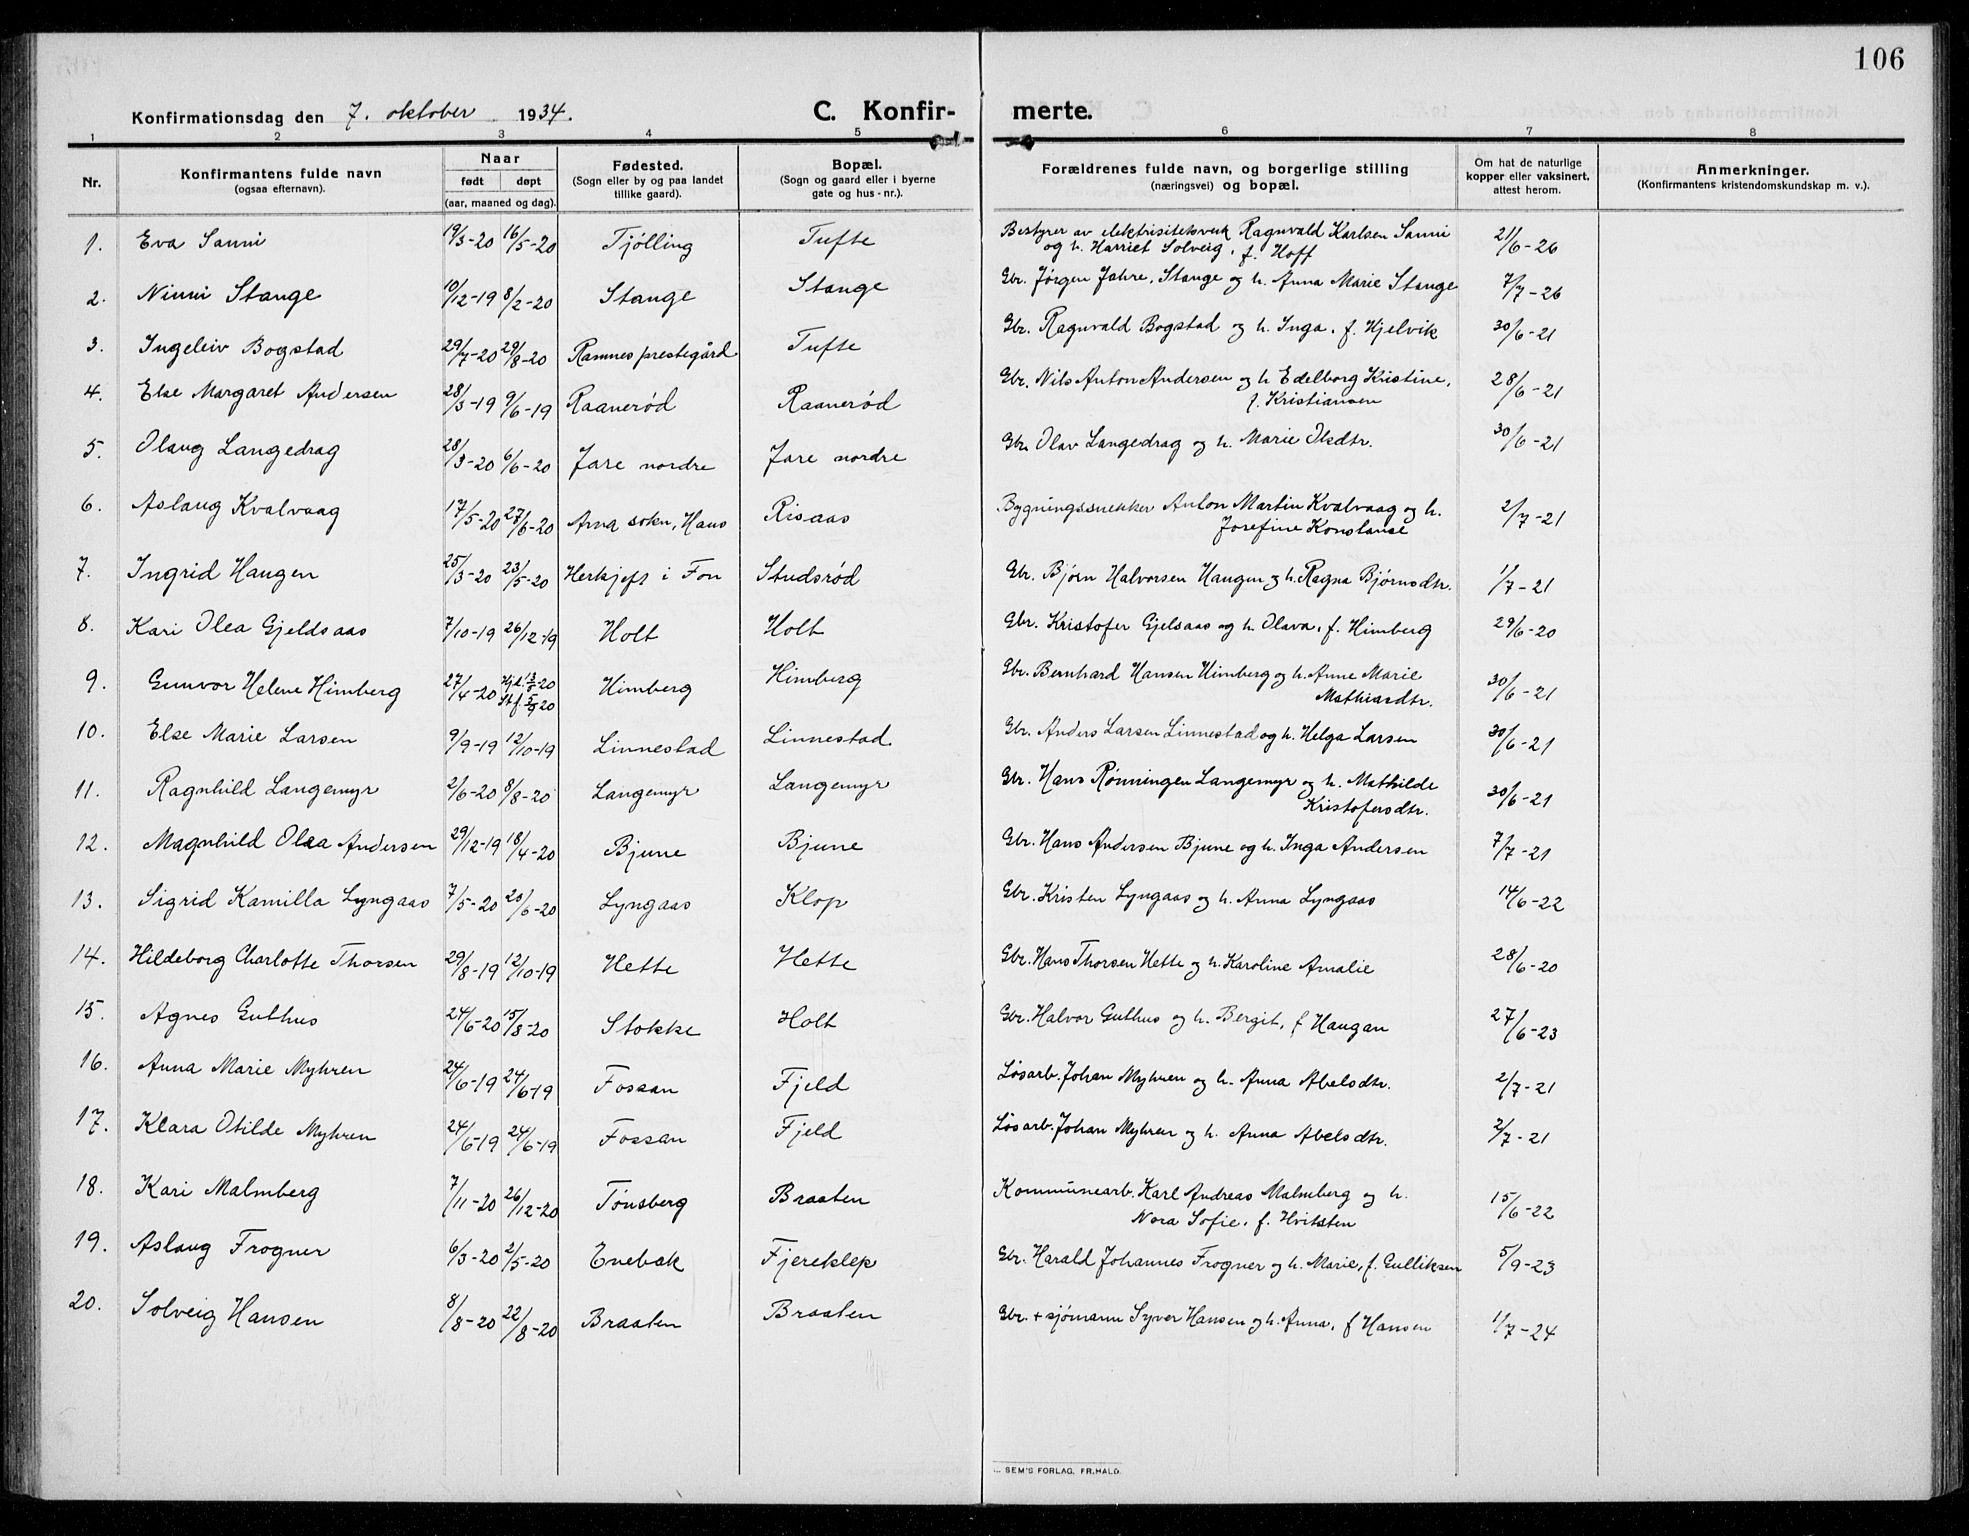 106
Konfirmationsdag den 7. oktober 1934.
C. Konfir- merte.
1 2 3 4 5 6 7 8
Nr.
Konfirmantens fulde navn
(ogsaa efternavn).
Naar
født døpt
(aar, maaned og dag).
Fødested.
(Sogn eller by og paa landet
tillike gaard).
Bopæl.
(Sogn og gaard eller i byerne
gate og hus-nr.).
Forældrenes fulde navn, og borgerlige stilling
(næringsvei) og bopæl.
Om hat de naturlige
kopper eller vaksinert,
attest herom.
Anmerkninger.
(Konfirmantens kristendomskundskap m. v.).
1. Eva Sanni 19/3-20 16/5-20 Tjølling Tufte Bestyrer av elektrisitetsverk Ragnvald Karlsen Sanni 21/6-26
og h. Harriet Solveig, f. Hoff
2. Ninni Stange 10/12-19 8/2-20 Stange Stange Gbr. Jørgen Jahre, Stange og h. Anna Marie Stange 7/7-26
3. Ingeleiv Bogstad 29/7-20 29/8-20 Ramnes prestegård Tufte Gbr. Ragnvald Bogstad og h. Inga, f. Hjelvik 30/6-21
4. Else Margaret Andersen 28/3-19 9/6-19 Raanerød Raanerød Gbr. Nils Anton Andersen og h Edelborg Kristine, 28/6-21
f. Kristiansen
5. Olaug Langedrag 28/3-20 6/6-20 Jare nordre Jare nordre Gbr. Olav Langedrag og h. Marie Olsdtr. 30/6-21
6. Aslaug Kvalvaag 17/5-20 27/6-20 Arna sokn, Haus Risaas Bygningssnekker Anton Martin Kvalvaag og h. 2/7-21
Josefine Konstanse
7. Ingrid Haugen 25/3-20 23/5-20 Herkjeft i Fon Studsrød Gbr. Bjørn Halvorsen Haugen og h. Ragna Bjørnsdtr. 1/7-21
8. Kari Olea Gjeldsaas 7/10-19 26/12-19 Holt Holt Gbr. Kristofer Gjelsaas og h. Olava, f. Himberg 29/6-20
9. Gunvor Helene Himberg 27/4-20 Hjd. 13/6-20 Himberg Himberg Gbr. Bernhard Hansen Himberg og h. Anne Marie 30/6-21
Stf. 5/9 20 Mathiasdtr.
10. Else Marie Larsen 9/9-19 12/10-19 Linnestad Linnestad Gbr. Anders Larsen Linnestad og h. Helga Larsen 30/6-21
11. Ragnhild Langemyr 2/6-20 8/8-20 Langemyr Langemyr Gbr. Hans Rønningen Langemyr og h. Mathilde 30/6-21
Kristofersdtr.
12. Magnhild Olea Andersen 29/12-19 18/4-20 Bjune Bjune Gbr. Hans Andersen Bjune og h. Inga Andersen 7/7-21
13. Sigrid Kamilla Lyngaas 7/5-20 20/6-20 Lyngaas Klop Gbr. Kristen Lyngaas og h. Anna Lyngaas 14/6-22
14. Hildeborg Charlotte Thorsen 29/8-19 12/10-19 Hette Hette Gbr. Hans Thorsen Hette og h. Karoline Amalie 28/6-20
15. Agnes Guthus 24/6-20 15/8-20 Stokke Holt Gbr. Halvor Guthus og h. Bergit, f Haugan 27/6-23
16. Anna Marie Myhren 24/6-19 24/6-19 Fossan Fjeld Løsarb. Johan Myhren og h. Anna Abelsdtr. 2/7-21
17. Klara Otilde Myhren 24/6-19 24/6-19 Fossan Fjeld Løsarb. Johan Myhren og h. Anna Abelsdtr. 2/7-21
18. Kari Malmberg 7/11-20 26/12-20 Tønsberg Braaten Kommunearb. Karl Andreas Malmberg og h. 15/6-22
Nora Sofie, f. Hvitsten
19. Aslaug Frogner 6/3-20 2/5-20 Enebak Fjereklep Gbr. Harald Johannes Frogner og h. Marie, f. Gulliksen 5/9-23
20. Solveig Hansen 8/8-20 22/8-20 Braaten Braaten Gbr. + sjømann Syver Hansen og h. Anna, f Hansen 1/7-24
SEM'S FORLAG, FR.HALD.